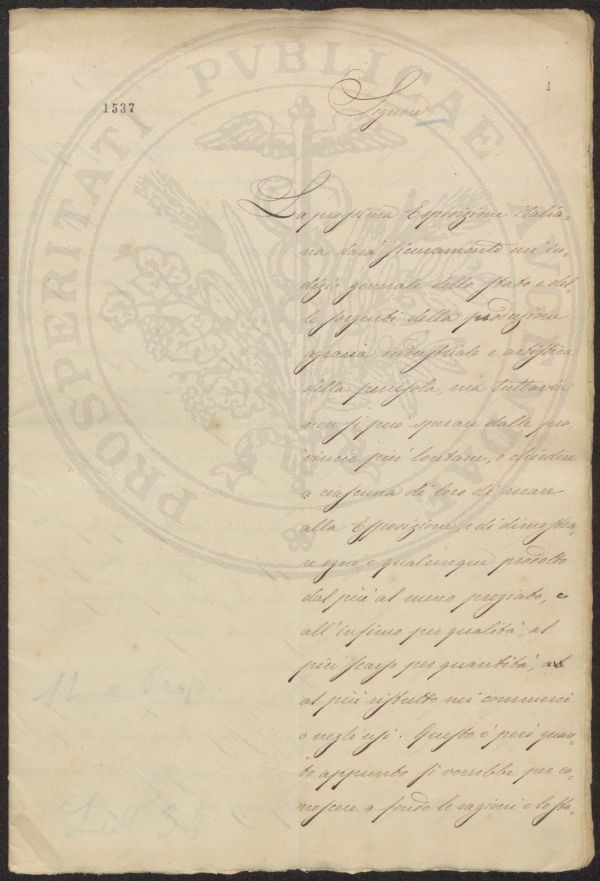 1
1537
PROSPERITATI PVBLICAE AVGENDAE
Signore
La prossima Esposizione italia=
na darà sicuramente un'in=
dizio generale dello stato e del=
le sorgenti della produzione
agraria industriale e artistica
della penisola, ma tuttavia
non si può sperare dalle pro=
vincie più lontane, o chiedere
a ciascuna di loro di recare
alla Esposizione, e di dimostra=
re ogni e qualunque prodotto
dal più al meno pregiato, e
all'infimo per qualità, al
più scarso per quantità, al
al più ristretto nei commerci
o negli usi. Questo è però quan=
to appunto si vorrebbe per co=
noscere a fondo le ragioni e lo sta=